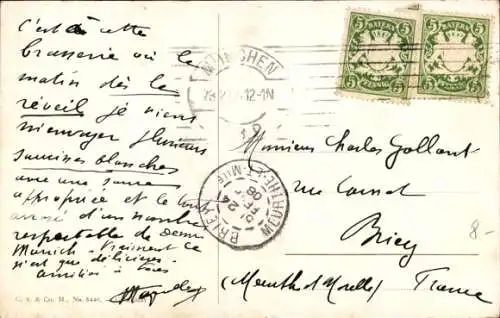 C'est à cette
brasserie où le
matin dès le
réveil je viens
m'envoyer plusieurs
saucisses blanches
avec une sauce
appropriée et le tout
arrosé d'un nombre
respectable de demis
Munich - Vraiment ce
n'est que délicieux -
amitiés à tous
G. B. & Co. M., No. 8446.
MÜNCHEN
12-1N
BAYERN
5 5
PFENNIG
BAYERN
5 5
PFENNIG
BRIEY
MEURTHE-ET-MLLE
24
08
Monsieur Charles Gallant
rue Carnot
Briey
(Meurthe et Moselle) France
8-